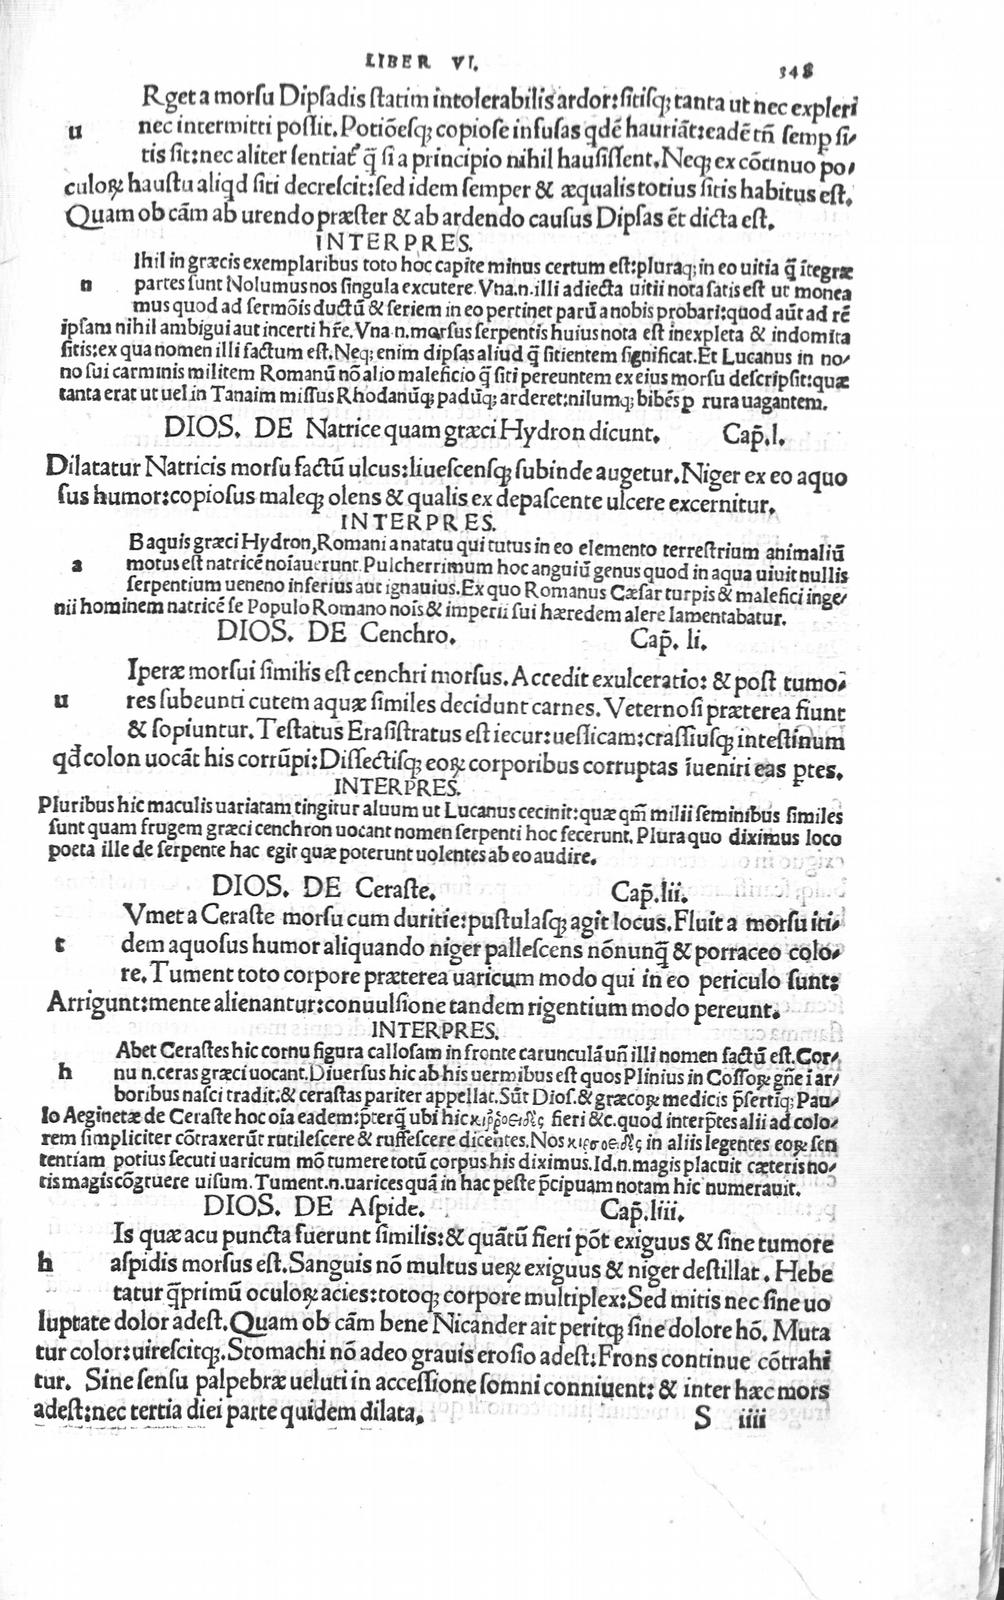 LIBER VI. 348
Rget a morsu Dipsadis statim intolerabilis ardor: sitisq; tanta ut nec expleri
u nec intermitti possit. Potiõesq; copiose infusas qdẽ hauriãt: eadẽ tñ semp si/
tis sit: nec aliter sentiat q̃ si a principio nihil hausissent. Neq; ex cõtinuo po/
culoꝝ haustu aliqd siti decrescit: sed idem semper & æqualis totius sitis habitus est.
Quam ob cãm ab urendo præster & ab ardendo causus Dipsas ẽt dicta est.
INTERPRES.
Ihil in græcis exemplaribus toto hoc capite minus certum est: pluraq; in eo uitia q̃ ĩtegræ
n partes sunt Nolumus nos singula excutere. Vna.n. illi adiecta uitii nota satis est ut monea
mus quod ad sermõis ductũ & seriem in eo pertinet parũ a nobis probari: quod aũt ad rẽ
ipsam nihil ambigui aut incerti hr̃e. Vna.n. morsus serpentis huius nota est inexpleta & indomita
sitis: ex qua nomen illi factum est. Neq; enim dipsas aliud q̃ sitientem significat. Et Lucanus in no/
no sui carminis militem Romanũ nõ alio maleficio q̃ siti pereuntem ex eius morsu descripsit: quæ
tanta erat ut uel in Tanaim missus Rhodanũq; padũq; arderet: nilumq; bibẽs ꝑ rura uagantem.
DIOS. DE Natrice quam græci Hydron dicunt. Cap̃.l.
Dilatatur Natricis morsu factũ ulcus: liuescensq; subinde augetur. Niger ex eo aquo
sus humor: copiosus maleq; olens & qualis ex depascente ulcere excernitur.
INTERPRES.
B aquis græci Hydron, Romani a natatu qui tutus in eo elemento terrestrium animaliũ
a motus est natricẽ noĩauerunt. Pulcherrimum hoc anguiũ genus quod in aqua uiuit nullis
serpentium ueneno inferius aut ignauius. Ex quo Romanus Cæsar turpis & malefici inge/
nii hominem natricẽ se Populo Romano nois & imperii sui hæredem alere lamentabatur.
DIOS. DE Cenchro. Cap̃. li.
Iperæ morsui similis est cenchri morsus. Accedit exulceratio: & post tumo/
u res subeunti cutem aquæ similes decidunt carnes. Veternosi præterea fiunt
& sopiuntur. Testatus Erasistratus est iecur: uessicam: crassiusq; intestinum
qd̃ colon uocãt his corrũpi: Dissectisq; eoꝝ corporibus corruptas ĩueniri eas ꝑtes.
INTERPRES.
Pluribus hic maculis uariatam tingitur aluum ut Lucanus cecinit: quæ qm̃ milii seminibus similes
sunt quam frugem græci cenchron uocant nomen serpenti hoc fecerunt. Plura quo diximus loco
poeta ille de serpente hac egit quæ poterunt uolentes ab eo audire.
DIOS. DE Ceraste. Cap̃.lii.
Vmet a Ceraste morsu cum duritie: pustulasq; agit locus. Fluit a morsu iti/
t dem aquosus humor aliquando niger pallescens nõnunq̃ & porraceo colo/
re. Tument toto corpore præterea uaricum modo qui in eo periculo sunt:
Arrigunt: mente alienantur: conuulsione tandem rigentium modo pereunt.
INTERPRES.
Abet Cerastes hic cornu figura callosam in fronte carunculã uñ illi nomen factũ est. Cor/
h nu n. ceras græci uocant. Diuersus hic ab his uermibus est quos Plinius in Cossoꝝ gñe i ar/
boribus nasci tradit: & cerastas pariter appellat. Sũt Dios. & græcoꝝ medicis p̃sertiq; Pau/
lo Aeginetæ de Ceraste hoc oĩa eadem: p̃terq̃ ubi hic κιῤῥοειδὲς fieri &c. quod interp̃tes alii ad colo/
rem simpliciter cõtraxerũt rutilescere & ruffescere dicentes. Nos κιρσοειδὲς in aliis legentes eoꝝ sen
tentiam potius secuti uaricum mõ tumere totũ corpus his diximus. Id.n. magis placuit cæteris no/
tis magis cõgruere uisum. Tument.n. uarices quã in hac peste p̃cipuam notam hic numerauit.
DIOS. DE Aspide. Cap̃.liii.
Is quæ acu puncta fuerunt similis: & quãtũ fieri põt exiguus & sine tumore
h aspidis morsus est. Sanguis nõ multus ueꝝ exiguus & niger destillat. Hebe
tatur q̃primũ oculoꝝ acies: totoq; corpore multiplex: Sed mitis nec sine uo
luptate dolor adest. Quam ob cãm bene Nicander ait peritq; sine dolore hõ. Muta
tur color: uirescitq;. Stomachi nõ adeo grauis erosio adest: Frons continue cõtrahi
tur. Sine sensu palpebræ ueluti in accessione somni conniuent: & inter hæc mors
adest: nec tertia diei parte quidem dilata. S iiii